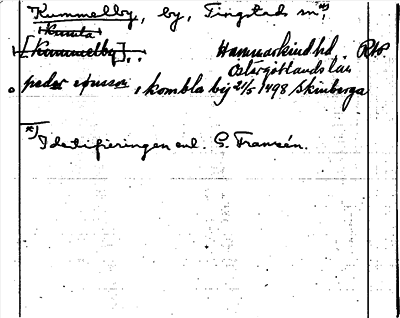 Kummelby, by, Tingstads sn*)
Kumla
[Kummelby], . Hammarkind hd. RAP
Östergötlands län
peder ionsson, kombla by 21/5 1498 Skenberga
*) Identifieringen enl. G. Franzén.